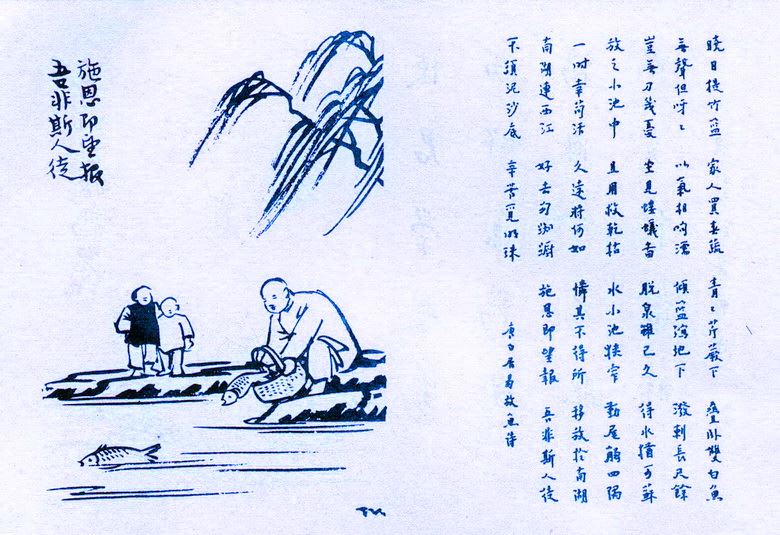 曉日提竹籃 家人買春蔬 青々芹蕨下 疊臥雙白魚
無聲但呀々 以氣相呴濡 傾籃瀉地下 潑剌長尺餘
豈無刀幾憂 坐見螻蟻圖 脫泉雖已久 得水猶可蘇
放之小池中 且用救乾枯 水小池狹窄 動尾觸四隅
一时幸苟活 久遠將何如 憐其不得所 移放於南湖
南湖連西江 好去勿踟躕 施恩即望報 吾非斯人徒
不須泥沙底 辛苦覓明珠 唐白居易放魚詩
施恩即望報
吾非斯人徒
TK